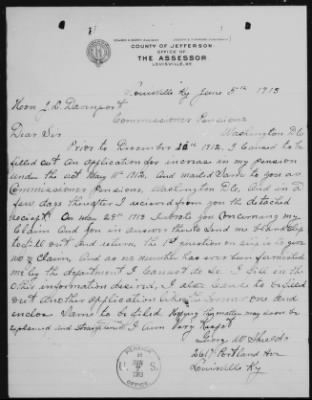 COUNTY OF JEFFERSON
OFFICE OF
THE ASSESSOR
LOUISVILLE, KY.
Louisville Ky June 5th 1913
Hon J. L. Davenport
Commissioner Pensions
Washington D.C.
Dear Sir
Prior to December 1912, I caused to be
filled out an application for increase in my pension
under the act May 11th 1912. And mailed same to you as
Commissioner Pensions, Washington D.C. And in a
few days I recieved from you the detached
reciept. On May 29th 1913 I wrote you concerning my
claim And you in answer send me blank slip
to fill out and return the 1st question on slip is to give
no of claim, And as no number has ever been furnished
me by the department I cannot do so. I fill in the
other information desired, I also cause to be filled
out another application like the former one and
enclose same to be filed Hoping the matter may soon be
explained and straightened I am Very Respct
George W.
2617 Portland Ave
Louisville Ky
PENSION
U. S.
JUN
7
1913
OFFICE